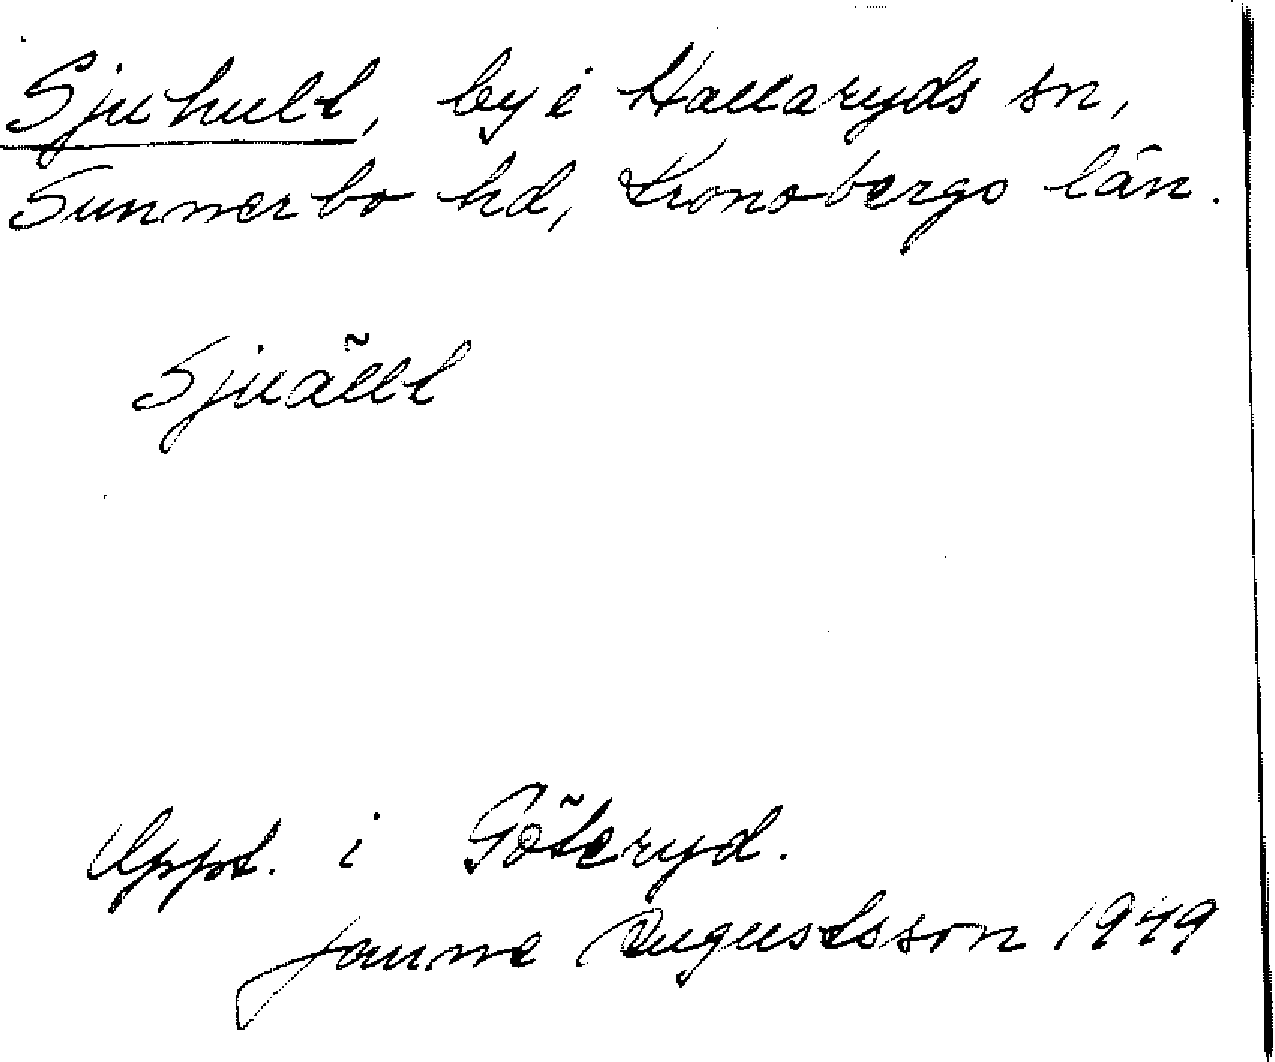 Sjuhult, by i Hallaryds sn,
Sunnerbo hd, Kronobergs län.
Sjuällt
Uppt. i Göteryd.
Janne Augustsson 1949